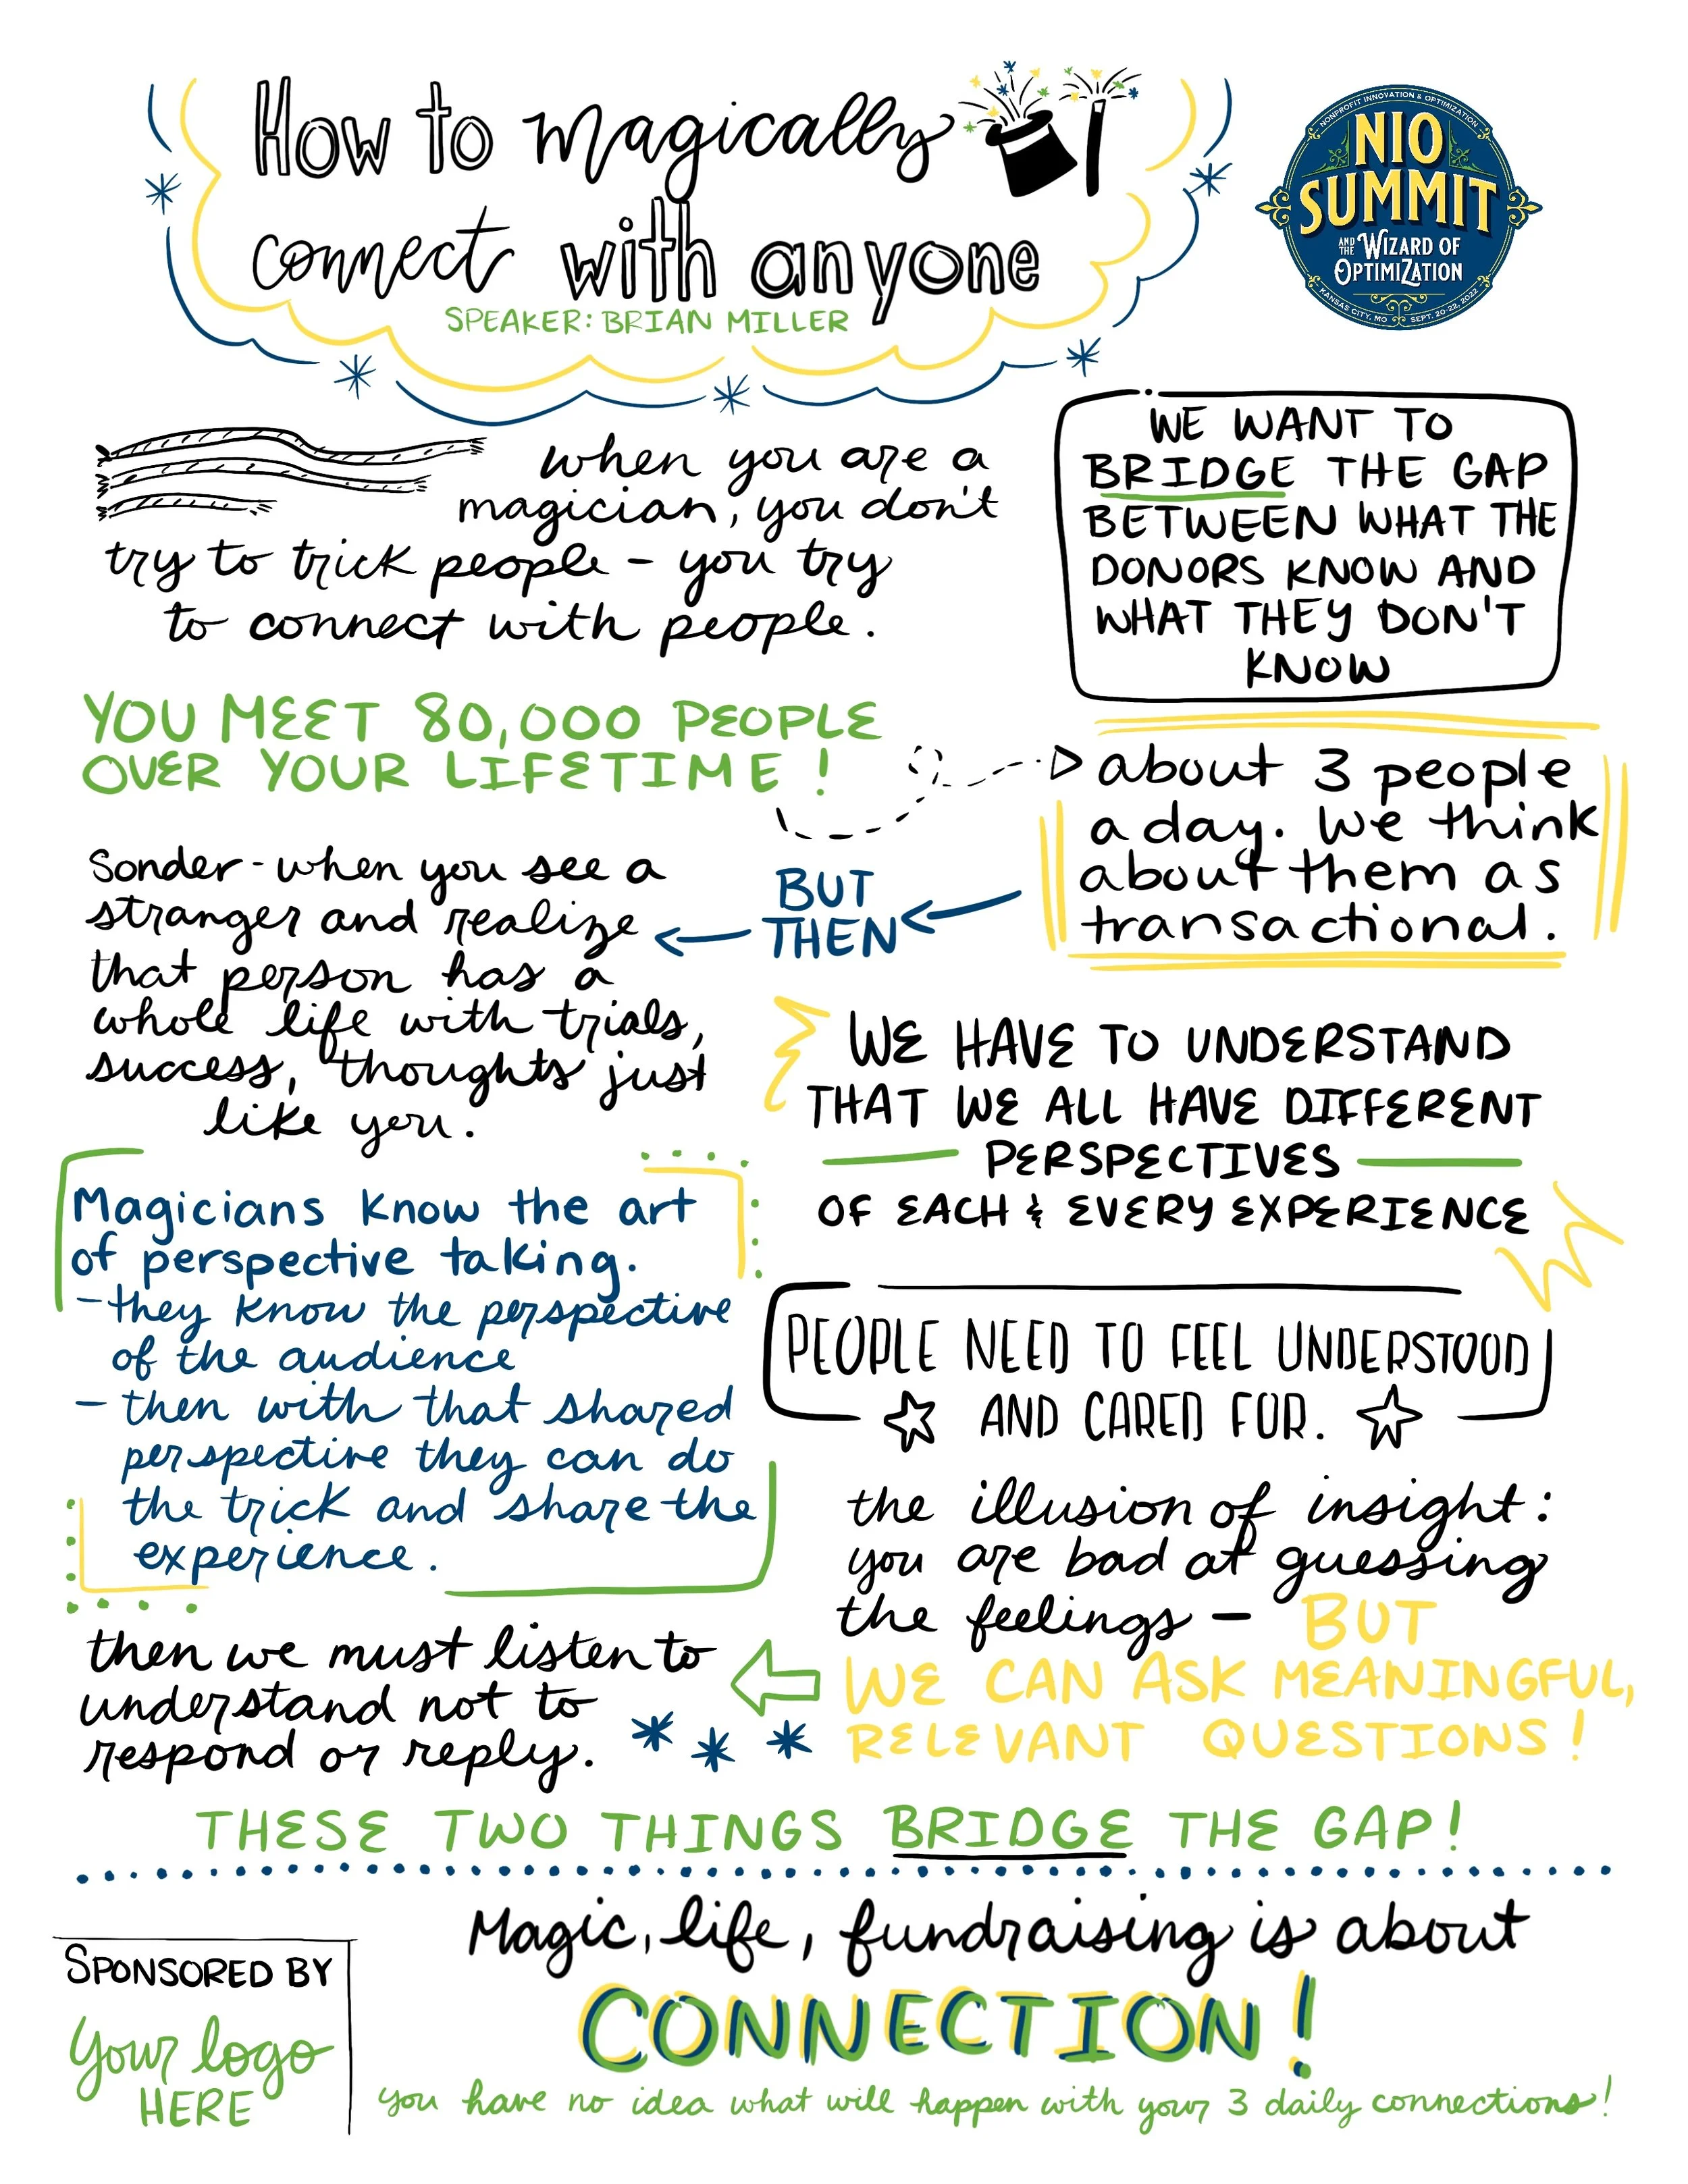 How to magically
connect with anyone
SPEAKER: BRIAN MILLER
NONPROFIT INNOVATION & OPTIMIZATION
NIO
SUMMIT
AND THE WIZARD OF
OPTIMIZATION
KANSAS CITY, MO SEPT. 20-22, 2022
when you are a
magician, you don't
try to trick people - you try
to connect with people.
WE WANT TO
BRIDGE THE GAP
BETWEEN WHAT THE
DONORS KNOW AND
WHAT THEY DON'T
KNOW
YOU MEET 80,000 PEOPLE
OVER YOUR LIFETIME!
about 3 people
a day. We think
about them as
transactional.
BUT
THEN
Sonder - when you see a
stranger and realize
that person has a
whole life with trials,
success, thoughts just
like you.
WE HAVE TO UNDERSTAND
THAT WE ALL HAVE DIFFERENT
PERSPECTIVES
OF EACH & EVERY EXPERIENCE
Magicians know the art
of perspective taking.
- they know the perspective
of the audience
- then with that shared
perspective they can do
the trick and share the
experience.
PEOPLE NEED TO FEEL UNDERSTOOD
AND CARED FOR.
the illusion of insight:
you are bad at guessing
the feelings - BUT
WE CAN ASK MEANINGFUL,
RELEVANT QUESTIONS!
then we must listen to
understand not to
respond or reply.
THESE TWO THINGS BRIDGE THE GAP!
Magic, life, fundraising is about
CONNECTION!
you have no idea what will happen with your 3 daily connections!
SPONSORED BY
Your logo
HERE